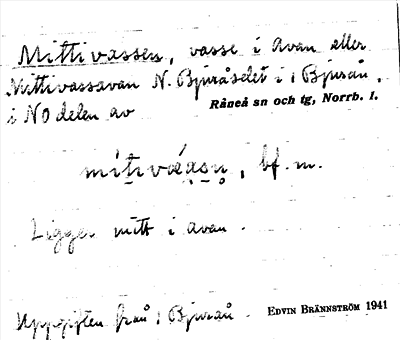 Mittivassen, vasse i Avan eller
Mittivassavan N. Bjuråselet i Bjuraå,
i NO delen av
Råneå sn och tg, Norrb. l.
bf. m.
Ligger mitt i avan.
Uppgiften från Bjuraå.
EDVIN BRÄNNSTRÖM 1941